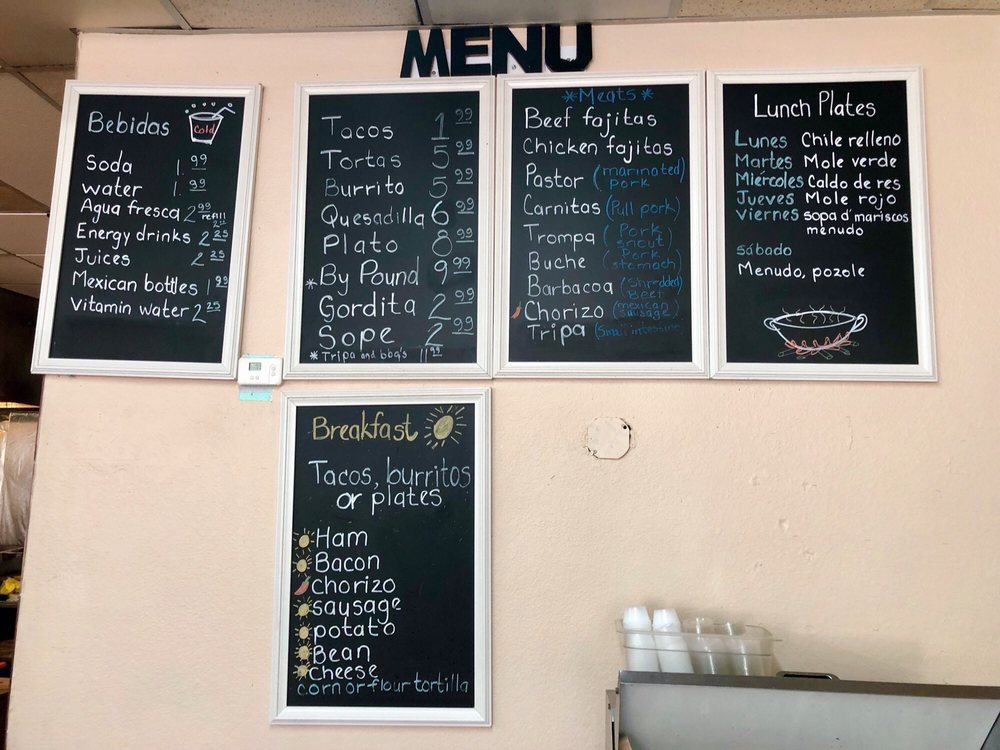 MENU
Bebidas
Cold
Soda 1.99
water 1.99
Agua fresca 2.99
refill
Energy drinks 2.25
Juices 2.25
Mexican bottles 1.99
Vitamin water 2.25
Tacos 1.99
Tortas 5.99
Burrito 5.99
Quesadilla 6.99
Plato 8.99
*By Pound 9.99
Gordita 2.99
Sope 2.99
*Tripa and bbq's 11.99
*Meats*
Beef fajitas
Chicken fajitas
Pastor (marinated)
pork
Carnitas (Pull pork)
Trompa (Pork
snout)
Buche (Pork
stomach)
Barbacoa (Shredded)
Beef
Chorizo (mexican
sausage)
Tripa (Small intestine)
Lunch Plates
Lunes Chile relleno
Martes Mole verde
Miércoles Caldo de res
Jueves Mole rojo
Viernes sopa d' mariscos
menudo
sábado
Menudo, pozole
Breakfast
Tacos, burritos
or plates
Ham
Bacon
Chorizo
sausage
potato
Bean
Cheese
corn or flour tortilla